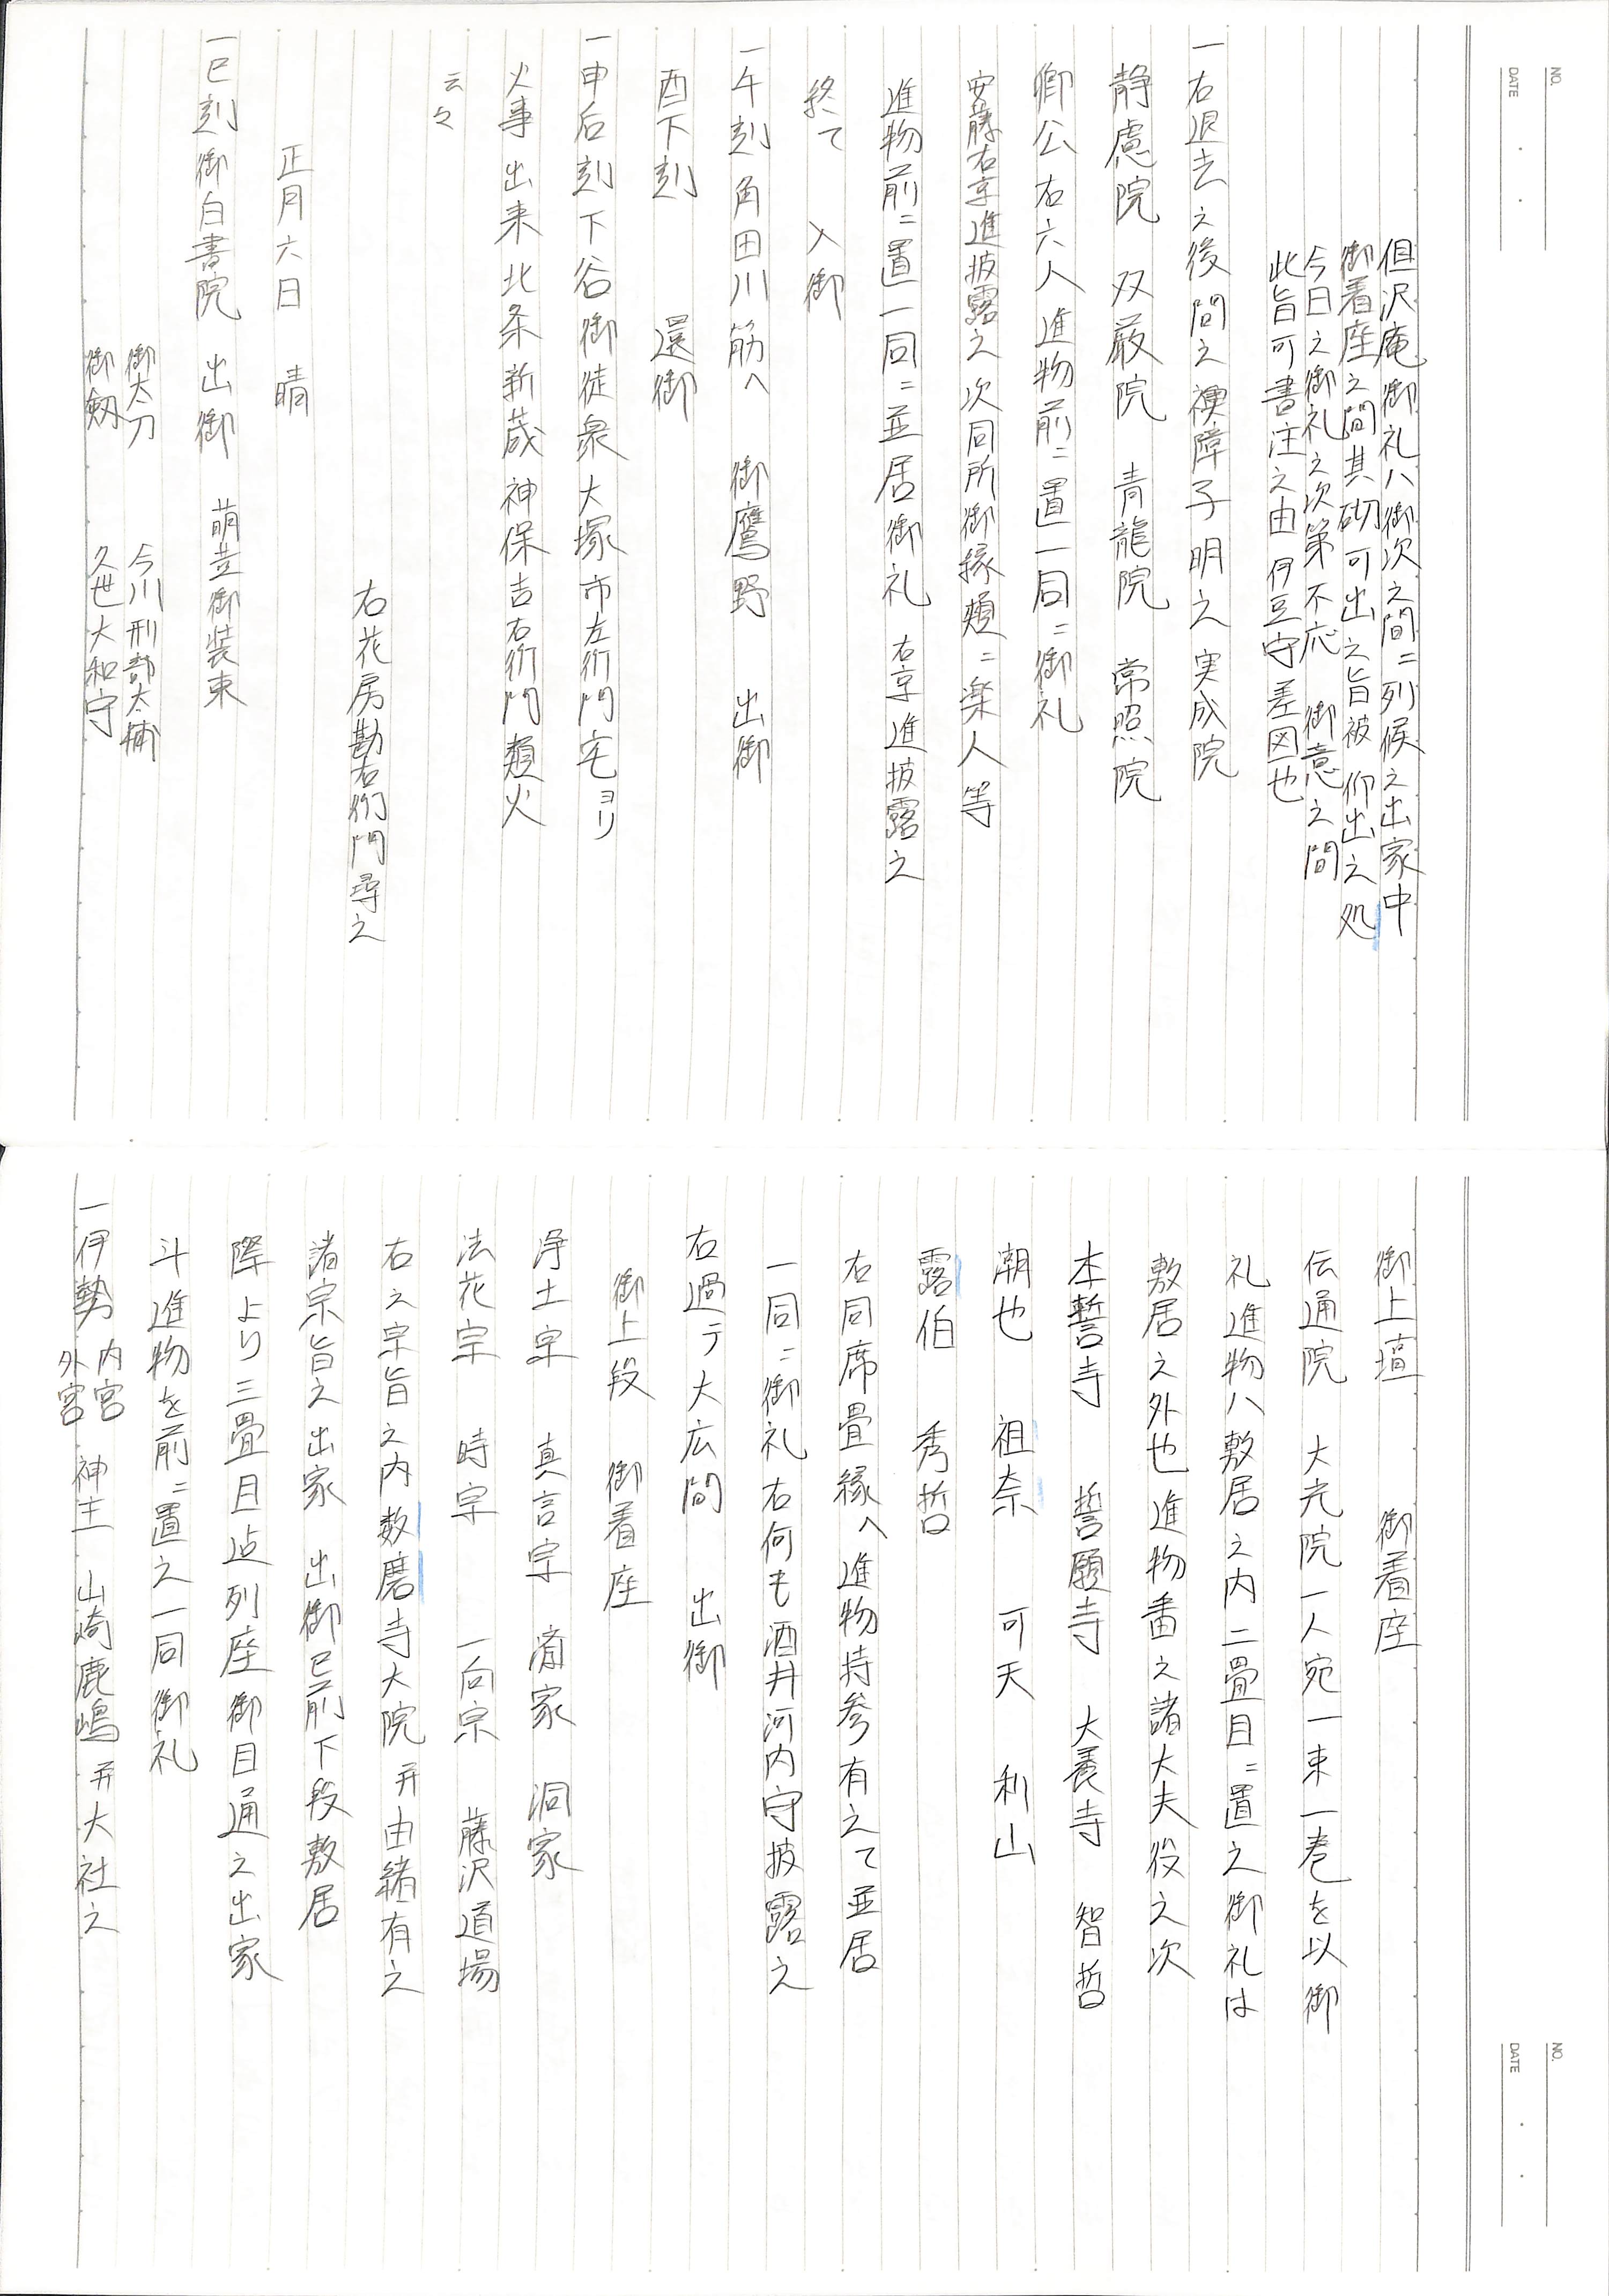 NO.
DATE
但沢庵御礼ハ御次之間ニ列候之出家中
御着座之間其砌可出之旨被 仰出之処
今日之御礼之次第不応 御意之間
此旨可書注之由 伊豆守差図也
一右退去之後間之襖障子明之 実成院
静慮院 双厳院 青龍院 常照院
卿公右六人進物前ニ置一同ニ御礼
安藤右京進披露之次同所御縁頬ニ楽人等
進物前ニ置一同ニ並居御礼 右京進披露之
終て 入御
一午刻角田川筋へ 御鷹野 出御
酉下刻 還御
一申后刻下谷御徒衆大塚市左衛門宅ヨリ
火事出来北条新蔵神保吉右衛門類火
云々
右花房勘右衛門尋之
正月六日 晴
一巳刻御白書院 出御 萌黄御装束
御太刀 今川刑部太輔
御剱 久世大和守
NO.
DATE
御上壇 御着座
伝通院 大光院一人宛一束一巻を以御
礼進物ハ敷居之内二畳目ニ置之御礼は
敷居之外也進物番之諸大夫役之次
本誓寺 誓願寺 大養寺 智哲
潮也 祖奈 可天 利山
露伯 秀哲
右同席畳縁へ進物持参有之て並居
一同ニ御礼右何も酒井河内守披露之
右過テ大広間 出御
御上段 御着座
浄土宗 真言宗 済家 洞家
法花宗 時宗 一向宗 藤沢道場
右之宗旨之内数磨寺大院并由緒有之
諸宗旨之出家 出御已前下段敷居
際より三畳目迠列座御目通之出家
斗進物を前ニ置之一同御礼
一伊勢 内宮 外宮 神主 山崎鹿嶋并大社之